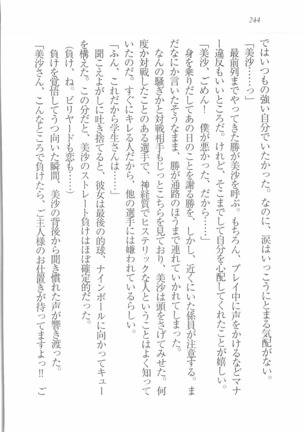 244
ではいつもの強い自分でいたかった。なのに、涙はいっこうにとまる気配がない。
「美沙……っ」
最前列までやってきた勝が美沙を呼ぶ。もちろん、プレイ中に声をかけるなどマナ
ー違反もいいところだ。けれど、そこまでして自分を心配してくれたことが嬉しい。
「美沙、ごめん！　僕が悪かった。だから――」
まだなにか言いたそうなまま、勝が通路のほうまで連れていかれてしまう。
なんの騒ぎかと対戦相手もじっとこちらを見ており、美沙は頭をさげてみせた。何
度か対戦したことのある選手で、神経質でヒステリックな人ということはよく知って
いたのだ。すぐにキレる人だから、他の選手には嫌われているらしい。
「ふん、これだから学生さんは……」
聞こえよがしに吐き捨てると、彼女は最後の的球、ナインボールに向かってキュー
を構える。この分だと、美沙のストレート負けはほぼ確定的だった。
（負け、ね。ビリヤードも恋も……）
負けを覚悟してうつ向いた瞬間、美沙の背後から聞き慣れた声が響き渡った。
「美沙さん、こんなところで負けたら、ご主人様のお仕置きが待ってますよっ!!　ご